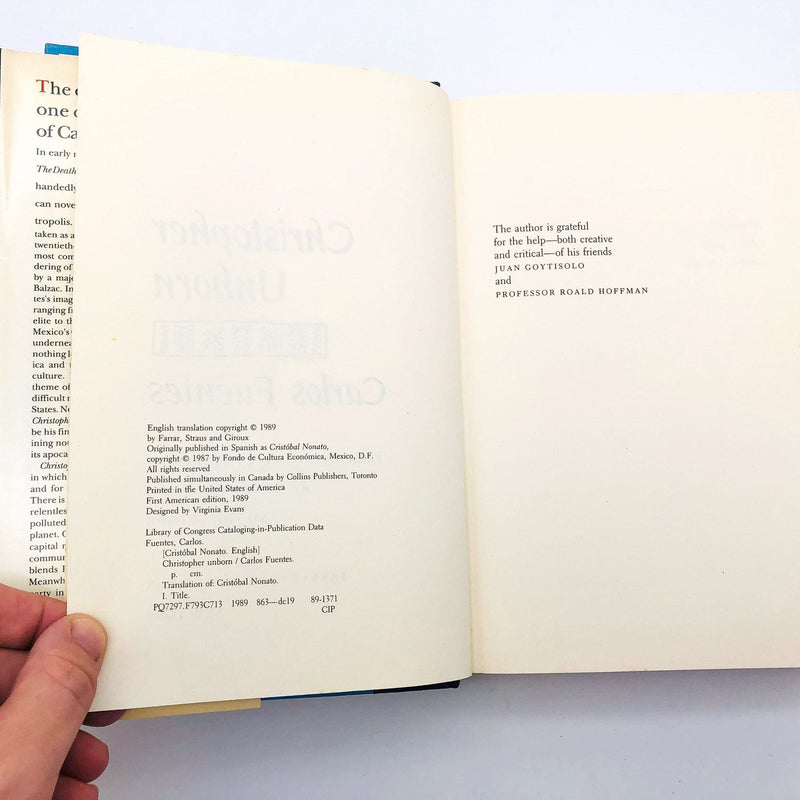 The
one
of Ca
In early
The Death
handedly
can nove
tropolis.
taken as a
twentieth
most com
dering of
by a majo
Balzac. In
tes's imag
ranging fi
elite to th
Mexico's
underne
nothing l
ica and
culture.
theme of
difficult
States. N
Christoph
be his fin
ining no
its apoca
Christo
in which
and for
There is
relentles
polluted
planet. C
capital
commun
blends I
Meanwh
arty in
Christopher
Unborn
Carlos Fuentes
English translation copyright © 1989
by Farrar, Straus and Giroux
Originally published in Spanish as Cristóbal Nonato,
copyright © 1987 by Fondo de Cultura Económica, Mexico, D.F.
All rights reserved
Published simultaneously in Canada by Collins Publishers, Toronto
Printed in the United States of America
First American edition, 1989
Designed by Virginia Evans
Library of Congress Cataloging-in-Publication Data
Fuentes, Carlos.
[Cristóbal Nonato. English]
Christopher unborn / Carlos Fuentes.
p. cm.
Translation of: Cristóbal Nonato.
I. Title.
PQ7297.F793C713 1989 863—dc19 89-1371
CIP
The author is grateful
for the help—both creative
and critical—of his friends
JUAN GOYTISOLO
and
PROFESSOR ROALD HOFFMAN